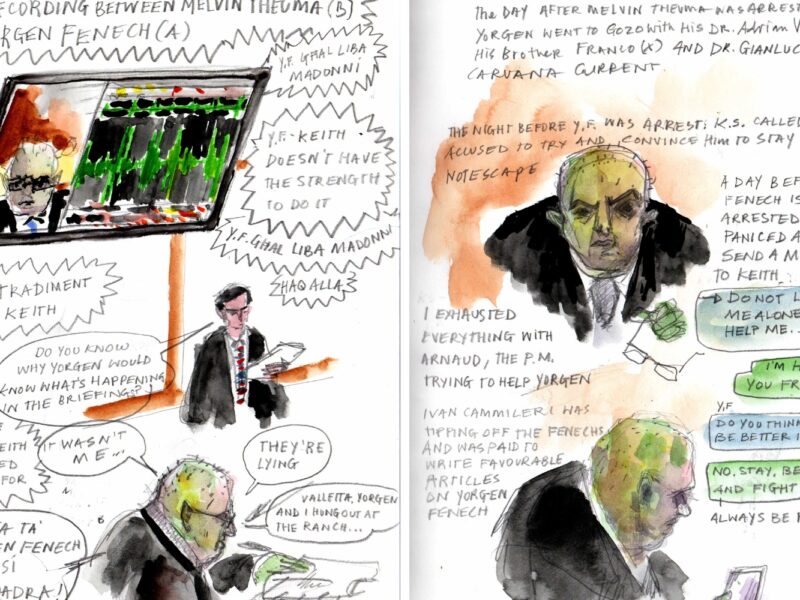 ECORDING BETWEEN MELVIN THEUMA (B)
YORGEN FENECH (A)
Y.F. GHAL LIBA
MADONNI
Y.F.- KEITH
DOESN'T HAVE
THE STRENGTH
TO DO IT
Y.F. GHAL LIBA MADONNI
HAQ ALLA
TRADIMENT
KEITH
DO YOU KNOW
WHY YORGEN WOULD
KNOW WHAT'S HAPPENING
IN THE BRIEFING?
KEITH
ED
FOR
IT WASN'T
ME...
THEY'RE
LYING
VALLETTA, YORGEN
AND I HUNG OUT AT
THE RANCH...
A TA'
EN FENECH
SI
ADRA!
THE DAY AFTER MELVIN THEUMA WAS ARRES
YORGEN WENT TO GOZO WITH HIS DR. ADRIAN V
HIS BROTHER FRANCO (X) AND DR. GIANLUC
CARUANA CURRENT.
THE NIGHT BEFORE Y.F. WAS ARREST: K.S. CALLED
ACCUSED TO TRY AND CONVINCE HIM TO STAY
NOT ESCAPE
A DAY BEF
FENECH IS
ARRESTED
PANICED A
SEND A M
TO KEITH
DO NOT L
ME ALONE
HELP ME...
I EXHAUSTED
EVERYTHING WITH
ARNAUD, THE P.M.
TRYING TO HELP YORGEN
I'M H
YOU FR
Y.F
DO YOU THIN
BE BETTER I
NO, STAY, BE
AND FIGHT
ALWAYS BE
IVAN CAMMILERI WAS
TIPPING OFF THE FENECHS
AND WAS PAID TO
WRITE FAVOURABLE
ARTICLES
ON YORGEN
FENECH